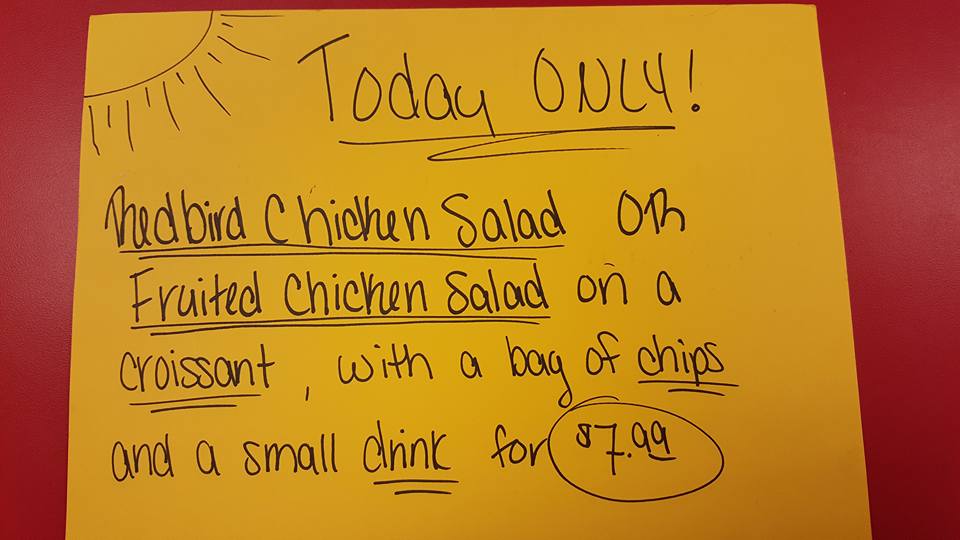 Today ONLY!
Redbird Chicken Salad OR
Fruited Chicken Salad on a
croissant, with a bag of chips
and a small drink for $7.99